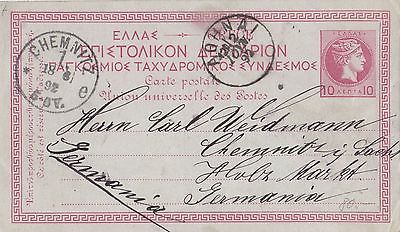 ΕΛΛΑΣ
ΕΠΙΣΤΟΛΙΚΟΝ ΔΕΛΤΑΡΙΟΝ
ΠΑΓΚΟΣΜΙΟΣ ΤΑΧΥΔΡΟΜΙΚΟΣ ΣΥΝΔΕΣΜΟΣ
Carte postale
Union universelle des Postes
CHEMNITZ
ΑΘΗΝΑΙ
10 ΛΕΠΤΑ 10
Herrn Carl Weidmann
Chemnitz i/ Sachs
Holz Markt
Germania
Germania